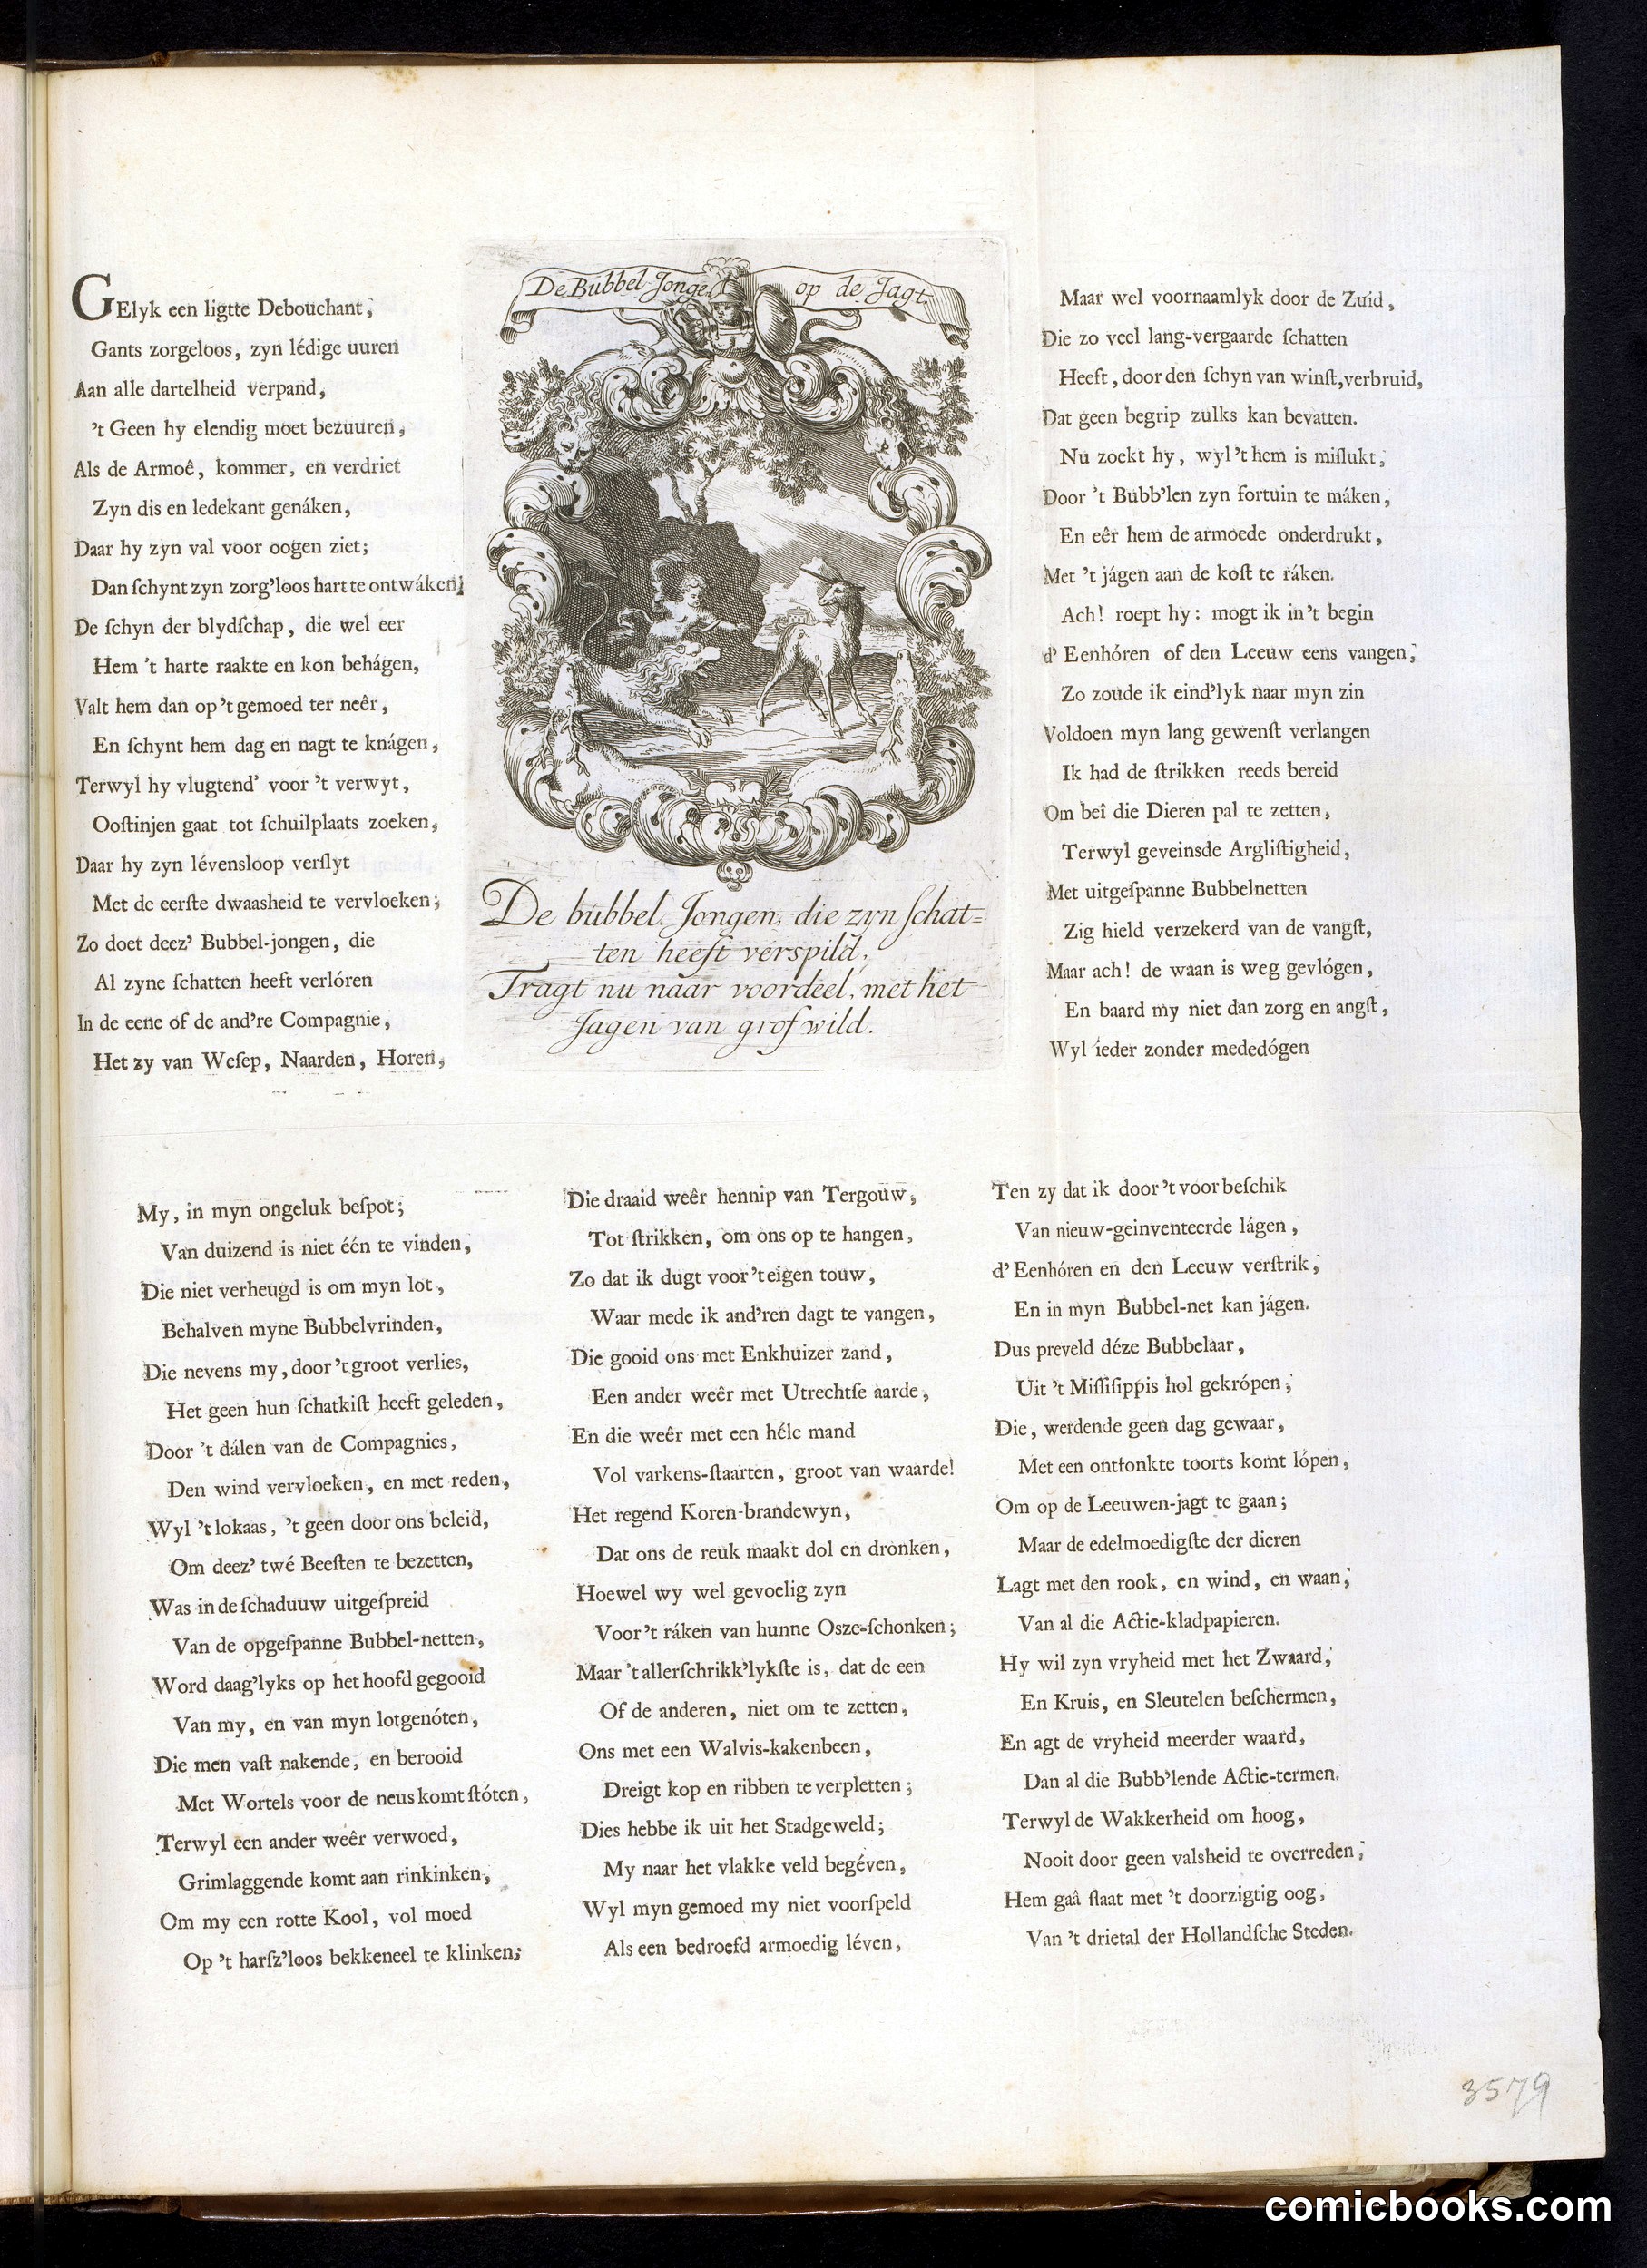 GElyk een ligtte Debouchant,
Gants zorgeloos, zyn lédige uuren
Aan alle dartelheid verpand,
't Geen hy elendig moet bezuuren,
Als de Armoê, kommer, en verdriet
Zyn dis en ledekant genáken,
Daar hy zyn val voor oogen ziet;
Dan ſchynt zyn zorg'loos hart te ontwáken;
De ſchyn der blydſchap, die wel eer
Hem 't harte raakte en kon behágen,
Valt hem dan op 't gemoed ter neêr,
En ſchynt hem dag en nagt te knágen,
Terwyl hy vlugtend' voor 't verwyt,
Ooſtinjen gaat tot ſchuilplaats zoeken,
Daar hy zyn lévensloop verſlyt
Met de eerſte dwaasheid te vervloeken;
Zo doet deez' Bubbel-jongen, die
Al zyne ſchatten heeft verlóren
In de eene of de and're Compagnie,
Het zy van Weſep, Naarden, Horen,
De Bubbel-Jongen op de Jagt.
De bubbel Jongen, die zyn ſchat=
ten heeft verspild,
Tragt nu naar voordeel, met het
Jagen van grof wild.
Maar wel voornaamlyk door de Zuid,
Die zo veel lang-vergaarde ſchatten
Heeft, door den ſchyn van winſt, verbruid,
Dat geen begrip zulks kan bevatten.
Nu zoekt hy, wyl 't hem is miſlukt,
Door 't Bubb'len zyn fortuin te máken,
En eêr hem de armoede onderdrukt,
Met 't jágen aan de koſt te ráken.
Ach! roept hy: mogt ik in 't begin
d' Eenhóren of den Leeuw eens vangen,
Zo zoude ik eind'lyk naar myn zin
Voldoen myn lang gewenſt verlangen
Ik had de ſtrikken reeds bereid
Om beî die Dieren pal te zetten,
Terwyl geveinsde Argliſtigheid,
Met uitgeſpanne Bubbelnetten
Zig hield verzekerd van de vangſt,
Maar ach! de waan is weg gevlógen,
En baard my niet dan zorg en angſt,
Wyl ieder zonder mededógen
My, in myn ongeluk beſpot;
Van duizend is niet één te vinden,
Die niet verheugd is om myn lot,
Behalven myne Bubbelvrinden,
Die nevens my, door 't groot verlies,
Het geen hun ſchatkiſt heeft geleden,
Door 't dálen van de Compagnies,
Den wind vervloeken, en met reden,
Wyl 't lokaas, 't geen door ons beleid,
Om deez' twé Beeſten te bezetten,
Was in de ſchaduuw uitgeſpreid
Van de opgeſpanne Bubbel-netten,
Word daag'lyks op het hoofd gegooid
Van my, en van myn lotgenóten,
Die men vaſt nakende, en berooid
Met Wortels voor de neus komt ſtóten,
Terwyl een ander weêr verwoed,
Grimlaggende komt aan rinkinken,
Om my een rotte Kool, vol moed
Op 't harſz'loos bekkeneel te klinken;
Die draaid weêr hennip van Tergouw,
Tot ſtrikken, om ons op te hangen,
Zo dat ik dugt voor 't eigen touw,
Waar mede ik and'ren dagt te vangen,
Die gooid ons met Enkhuizer zand,
Een ander weêr met Utrechtſe aarde,
En die weêr met een héle mand
Vol varkens-ſtaarten, groot van waarde!
Het regend Koren-brandewyn,
Dat ons de reuk maakt dol en dronken,
Hoewel wy wel gevoelig zyn
Voor 't ráken van hunne Osze-ſchonken;
Maar 't allerſchrikk'lykſte is, dat de een
Of de anderen, niet om te zetten,
Ons met een Walvis-kakenbeen,
Dreigt kop en ribben te verpletten;
Dies hebbe ik uit het Stadgeweld;
My naar het vlakke veld begéven,
Wyl myn gemoed my niet voorſpeld
Als een bedroefd armoedig léven,
Ten zy dat ik door 't voorbeſchik
Van nieuw-geinventeerde lágen,
d' Eenhóren en den Leeuw verſtrik,
En in myn Bubbel-net kan jágen.
Dus preveld déze Bubbelaar,
Uit 't Miſſiſippis hol gekrópen,
Die, werdende geen dag gewaar,
Met een ontfonkte toorts komt lópen,
Om op de Leeuwen-jagt te gaan;
Maar de edelmoedigſte der dieren
Lagt met den rook, en wind, en waan,
Van al die Actie-kladpapieren.
Hy wil zyn vryheid met het Zwaard,
En Kruis, en Sleutelen beſchermen,
En agt de vryheid meerder waard,
Dan al die Bubb'lende Actie-termen.
Terwyl de Wakkerheid om hoog,
Nooit door geen valsheid te overreden,
Hem gaâ ſlaat met 't doorzigtig oog,
Van 't drietal der Hollandſche Steden.
3579
comicbooks.com